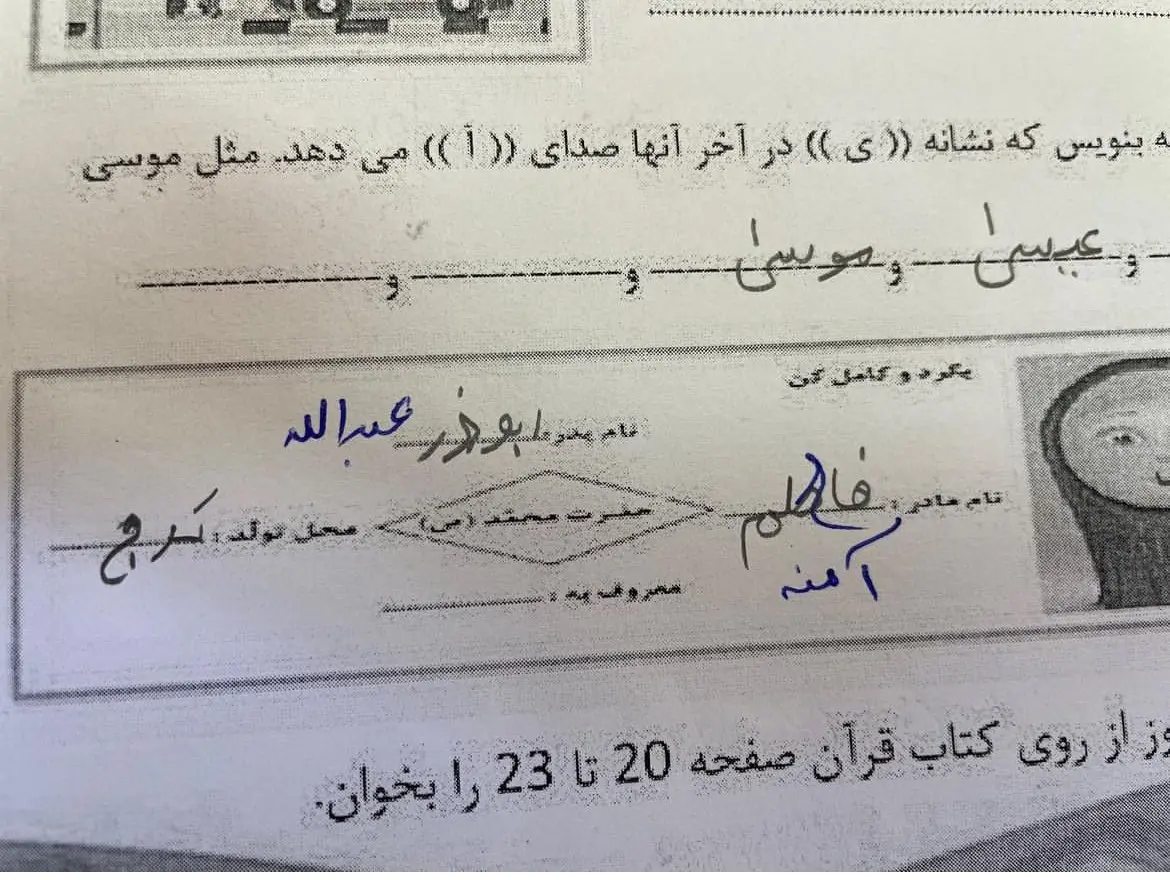 ه بنویس که نشانه (( ی )) در آخر آنها صدای (( آ )) می دهد. مثل موسی
و عیسیٰ و موسیٰ و و
بگرد و کامل کن
نام پدر: ابوذر عبدالله
نام مادر: فاطم
آمنه
حضرت محمّد (ص)
محل تولد: کرج
معروف به:
وز از روی کتاب قرآن صفحه 20 تا 23 را بخوان.